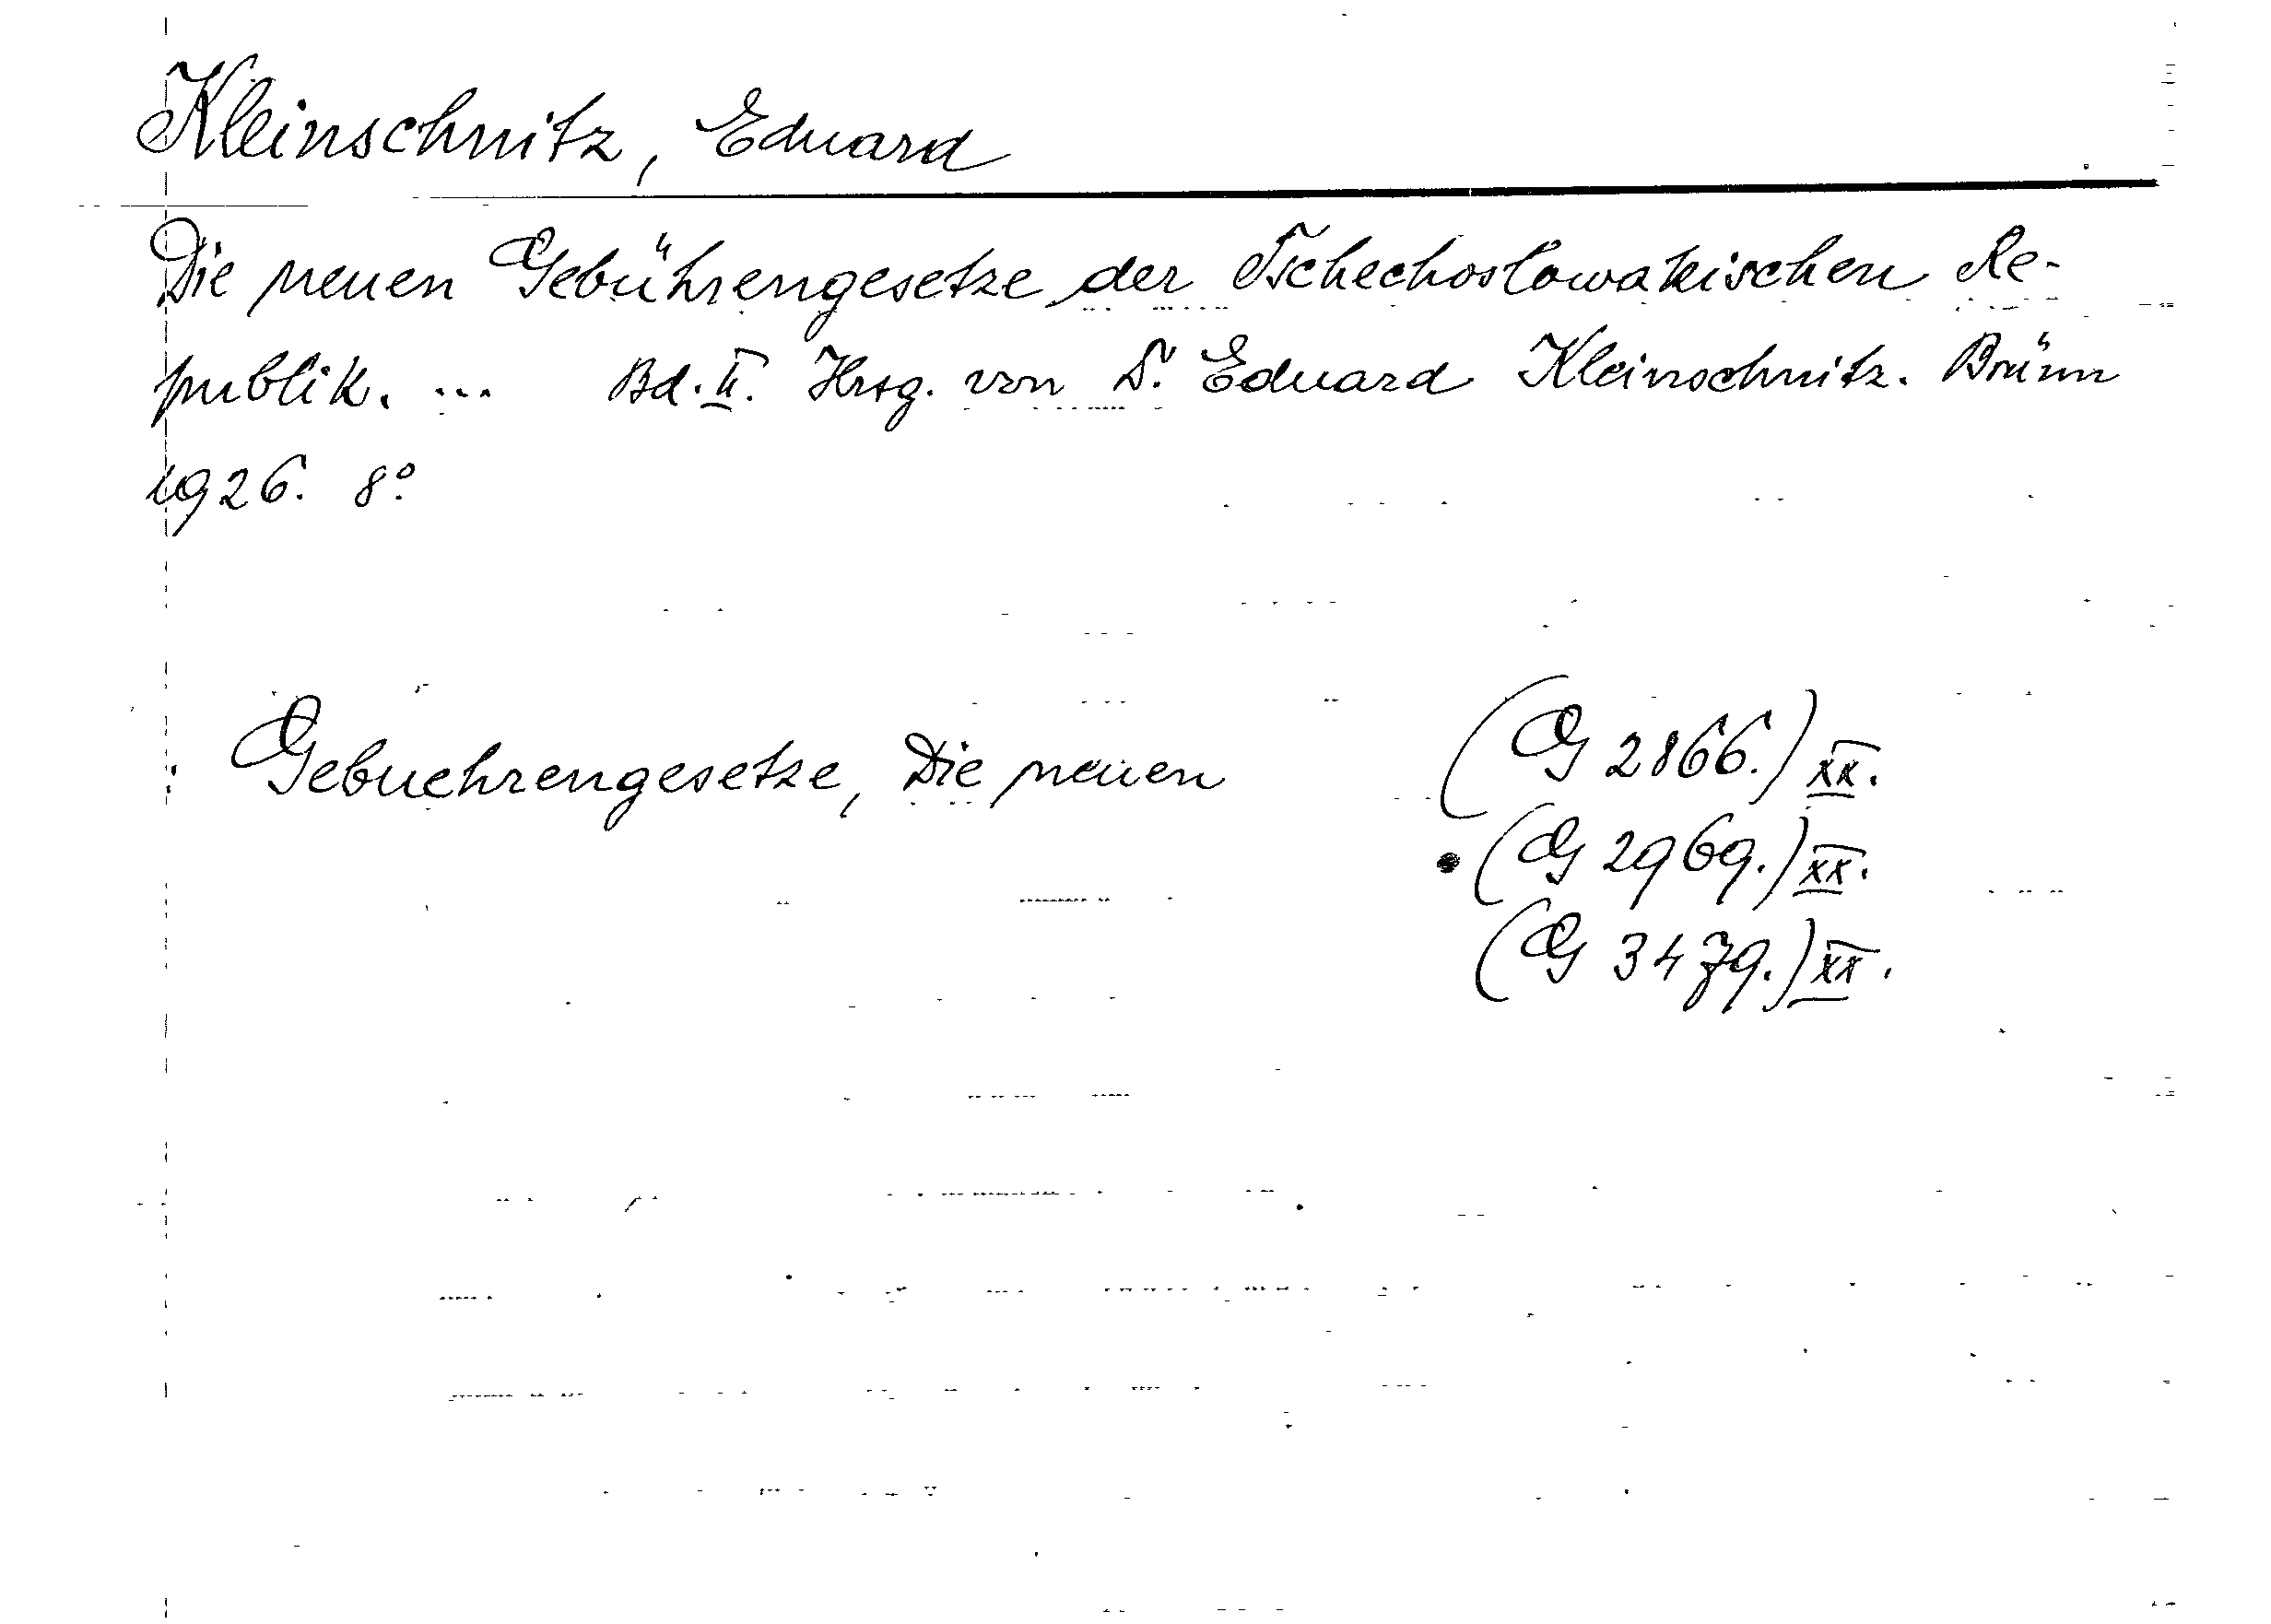 Kleinschnitz, Eduard
Die neuen Gebührengesetze der Tschechoslowakischen Re-
publik. ... Bd. II. Hrsg. von Dr. Eduard Kleinschnitz. Brünn
1926. 8°.
Gebuehrengesetze, Die neuen (G 2866.) XX.
(G 2969.) XX.
(G 3479.) XX.